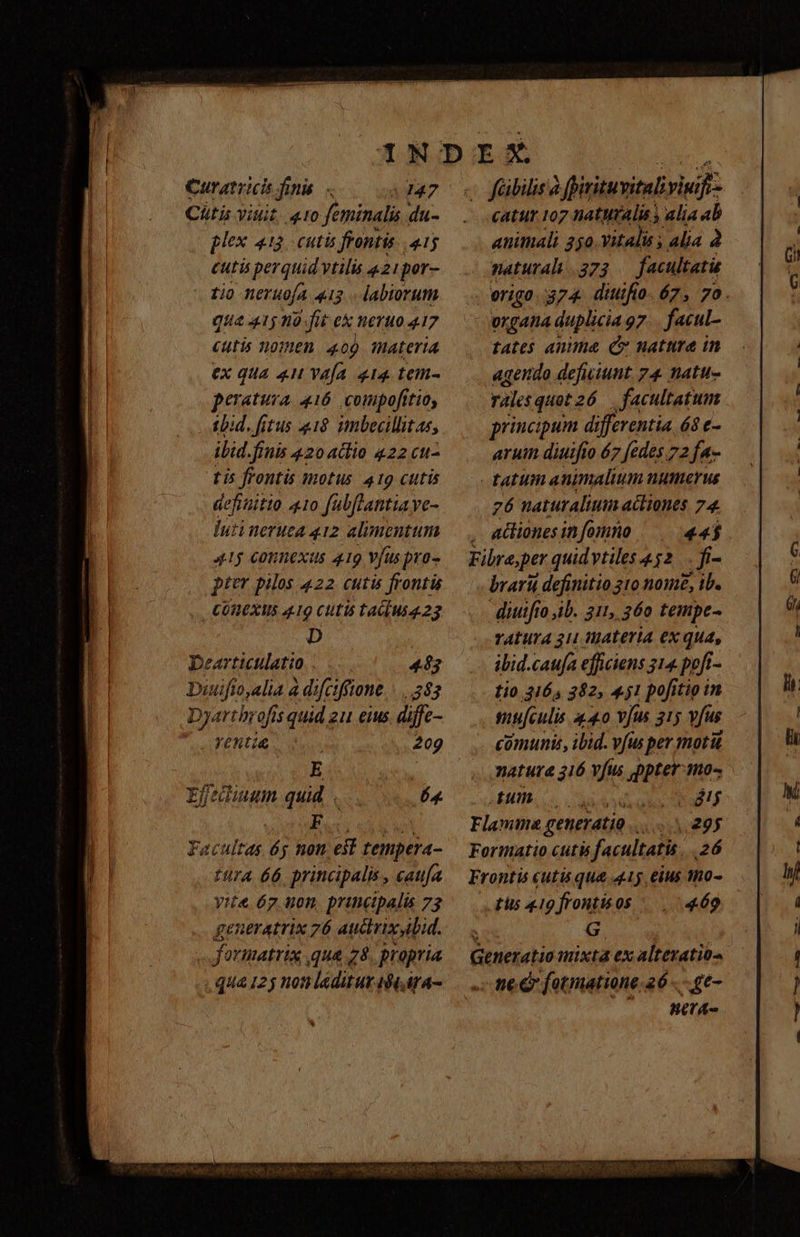 INDEX.
Curatricis finis 147
Cutis viuit 410 feminalis du-
plex 413 cutis frontis 415
cutis perquid vtilis 421 por-
tio neruosa 413 labiorum
quæ 415 nō fit ex neruo 417
cutis nomen 409 materia
ex qua 411 vasa 414 tem-
peratura 416 compositio,
ibid. situs 418 imbecillitas,
ibid. finis 420 actio 422 cu-
tis frontis motus 419 cutis
definitio 410 substantia ve-
luti neruea 412 alimentum
415 connexus 419 vsus pro-
pter pilos 422 cutis frontis
cōnexus 419 cutis tactus 423
D
Dearticulatio 483
Diuisio, alia à discissione 383
Dyarthrosis quid 211 eius diffe-
rentiæ 209
E
Effectiuum quid 64
F
Facultas 65 non est tempera-
tura 66 principalis, causa
vitæ 67 non principalis 73
generatrix 76 auctrix, ibid.
formatrix quæ 78 propria
qua 125 non læditur 181, ira-
scibilis à spiritu vitali viuifi-
catur 107 naturalis, alia ab
animali 350. vitalis, alia à
naturali 373 facultatis
origo 374 diuisio 67, 70.
organa duplicia 97 facul-
tates animæ & naturæ in
agendo deficiunt 74 natu-
rales quot 26 facultatum
principum differentia 68 e-
arum diuisio 67 sedes 72 fa-
tatum animalium numerus
76 naturalium actiones 74
actiones in somno 445
Fibræ, per quid vtiles 452 fi-
brarū definitio 310 nomē, ib.
diuisio, ib. 311, 360 tempe-
ratura 311 materia ex qua,
ibid. causa efficiens 314 posi-
tio 316, 382, 451 positio in
musculis 440 vsus 315 vsus
cōmunis, ibid. vsus per motū
naturæ 316 vsus ,ppter mo-
tum 315
Flammæ generatio 295
Formatio cutis facultatis 26
Frontis cutis quæ 415 eius mo-
tus 419 frontis os 469
G
Generatio mixta ex alteratio-
ne & formatione 26 ge-
nera-